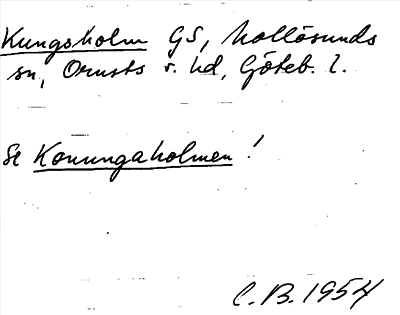 Kungsholm GS, Mollösunds
sn, Orusts v. hd, Göteb. l.
Se Konungaholmen!
C.B. 1954